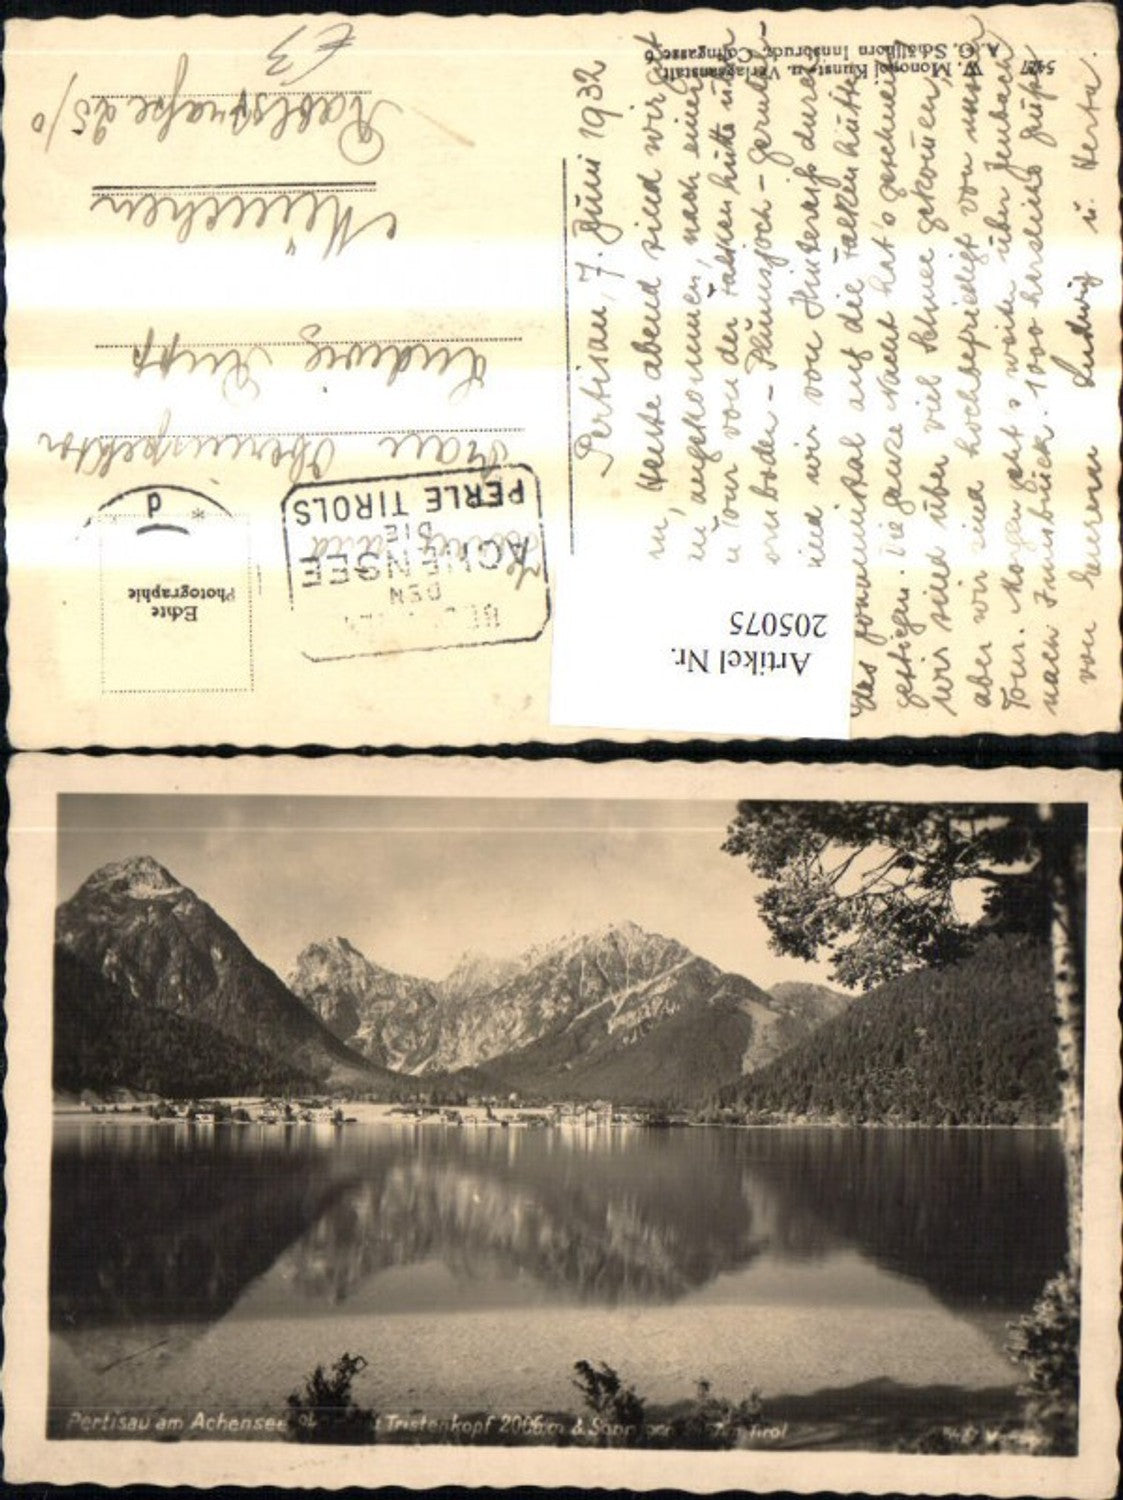 Pertisau, 7. Juni 1932
Heute abend sind wir gut
angekommen, nach einer
Tour von der Falkenhütte über
boden - Plumsjoch - Gerntal
sind wir von Hinterriß durch
das Johannistal auf die Falkenhütte
gestiegen. Die ganze Nacht hat's geschneit
wir sind über viel Schnee gekommen,
aber wir sind hochbefriedigt von unserer
Tour. Morgen geht's weiter über Jenbach
nach Innsbruck. 1000 herzliche Grüße
von Eueren Ludwig u. Herta.
5427 W. Monopol Kunst- u. Verlagsanstalt
A. G. Schöllhorn Innsbruck, Colingasse 6
Echte
Photographie
d
*
DEN
ACHENSEE
DIE
PERLE TIROLS
Frau Oberinspektor
Ludwig
München
25/0
£3
Artikel Nr.
205075
Pertisau am Achensee Tristenkopf 2006 m & Tirol